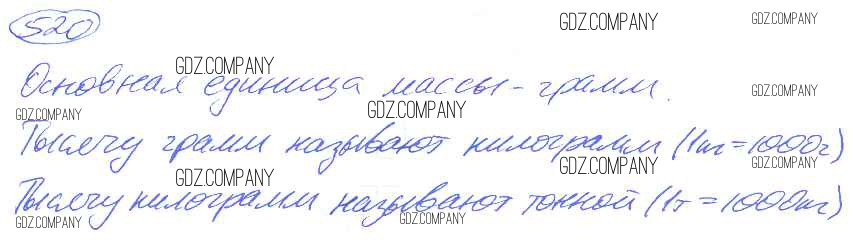 520
Основная единица массы - грамм.
Тысячу грамм называют килограмм (1кг = 1000г)
Тысячу килограмм называют тонной (1т = 1000кг)
GDZ.COMPANY
GDZ.COMPANY
GDZ.COMPANY
GDZ.COMPANY
GDZ.COMPANY
GDZ.COMPANY
GDZ.COMPANY
GDZ.COMPANY
GDZ.COMPANY
GDZ.COMPANY
GDZ.COMPANY
GDZ.COMPANY